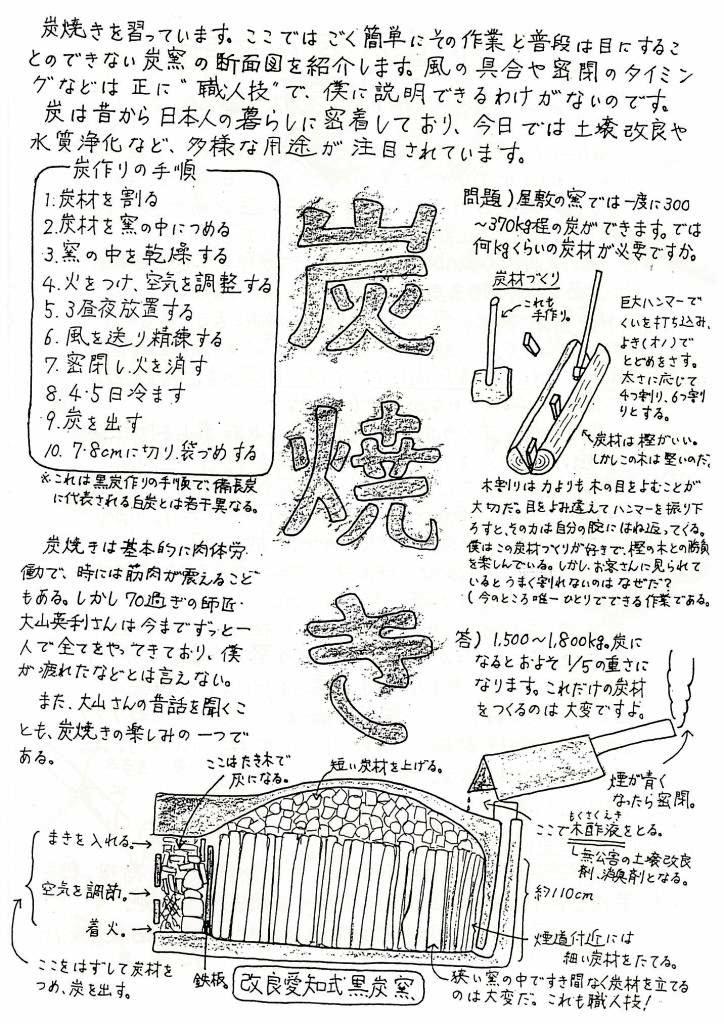 炭焼きを習っています。ここではごく簡単にその作業と普段は目にするこ
とのできない炭窯の断面図を紹介します。風の具合や密閉のタイミン
グなどは正に“職人技”で、僕に説明できるわけがないのです。
炭は昔から日本人の暮らしに密着しており、今日では土壌改良や
水質浄化など、多様な用途が注目されています。
炭作りの手順
1.炭材を割る
2.炭材を窯の中につめる
3.窯の中を乾燥する
4.火をつけ、空気を調整する
5.3昼夜放置する
6.風を送り精練する
7.密閉し火を消す
8.4・5日冷ます
9.炭を出す
10.7・8cmに切り、袋づめする
※これは黒炭作りの手順で、備長炭
に代表される白炭とは若干異なる。
炭焼き
問題)屋敷の窯では一度に300
〜370kg程の炭ができます。では
何kgくらいの炭材が必要ですか。
炭材づくり
これも
手作り。
巨大ハンマーで
くいを打ち込み、
よき(オノ)で
とどめをさす。
太さに応じて
4つ割り、6つ割り
りとする。
炭材は樫がいい。
しかしこの木は堅いのだ。
木割りは力よりも木の目をよむことが
大切だ。目をよみ違えてハンマーを振り下
ろすと、その力は自分の腕にはね返ってくる。
僕はこの炭材づくりが好きで、樫の木との勝負
を楽しんでいる。しかし、お客さんに見られて
いるとうまく割れないのはなぜだ?
(今のところ唯一ひとりでできる作業である。
炭焼きは基本的に肉体労
働で、時には筋肉が震えるこど
もある。しかし70過ぎの師匠・
大山英利さんは今までずっと一
人で全てをやってきており、僕
が疲れたなどとは言えない。
また、大山さんの昔話を聞くこ
とも、炭焼きの楽しみの一つで
ある。
答)1,500〜1,800kg。炭に
なるとおよそ1/5の重さに
なります。これだけの炭材
をつくるのは大変ですよ。
煙が青く
なったら密閉。
もくさくえき
ここで木酢液をとる。
無公害の土壌改良
剤、消臭剤となる。
ここはたき木で
灰になる。
短い炭材を上げる。
まきを入れる。
空気を調節。
着火。
ここをはずして炭材を
つめ、炭を出す。
鉄板。
改良愛知式黒炭窯
約110cm
煙道付近には
細い炭材をたてる。
狭い窯の中ですき間なく炭材を立てる
のは大変だ。これも職人技!